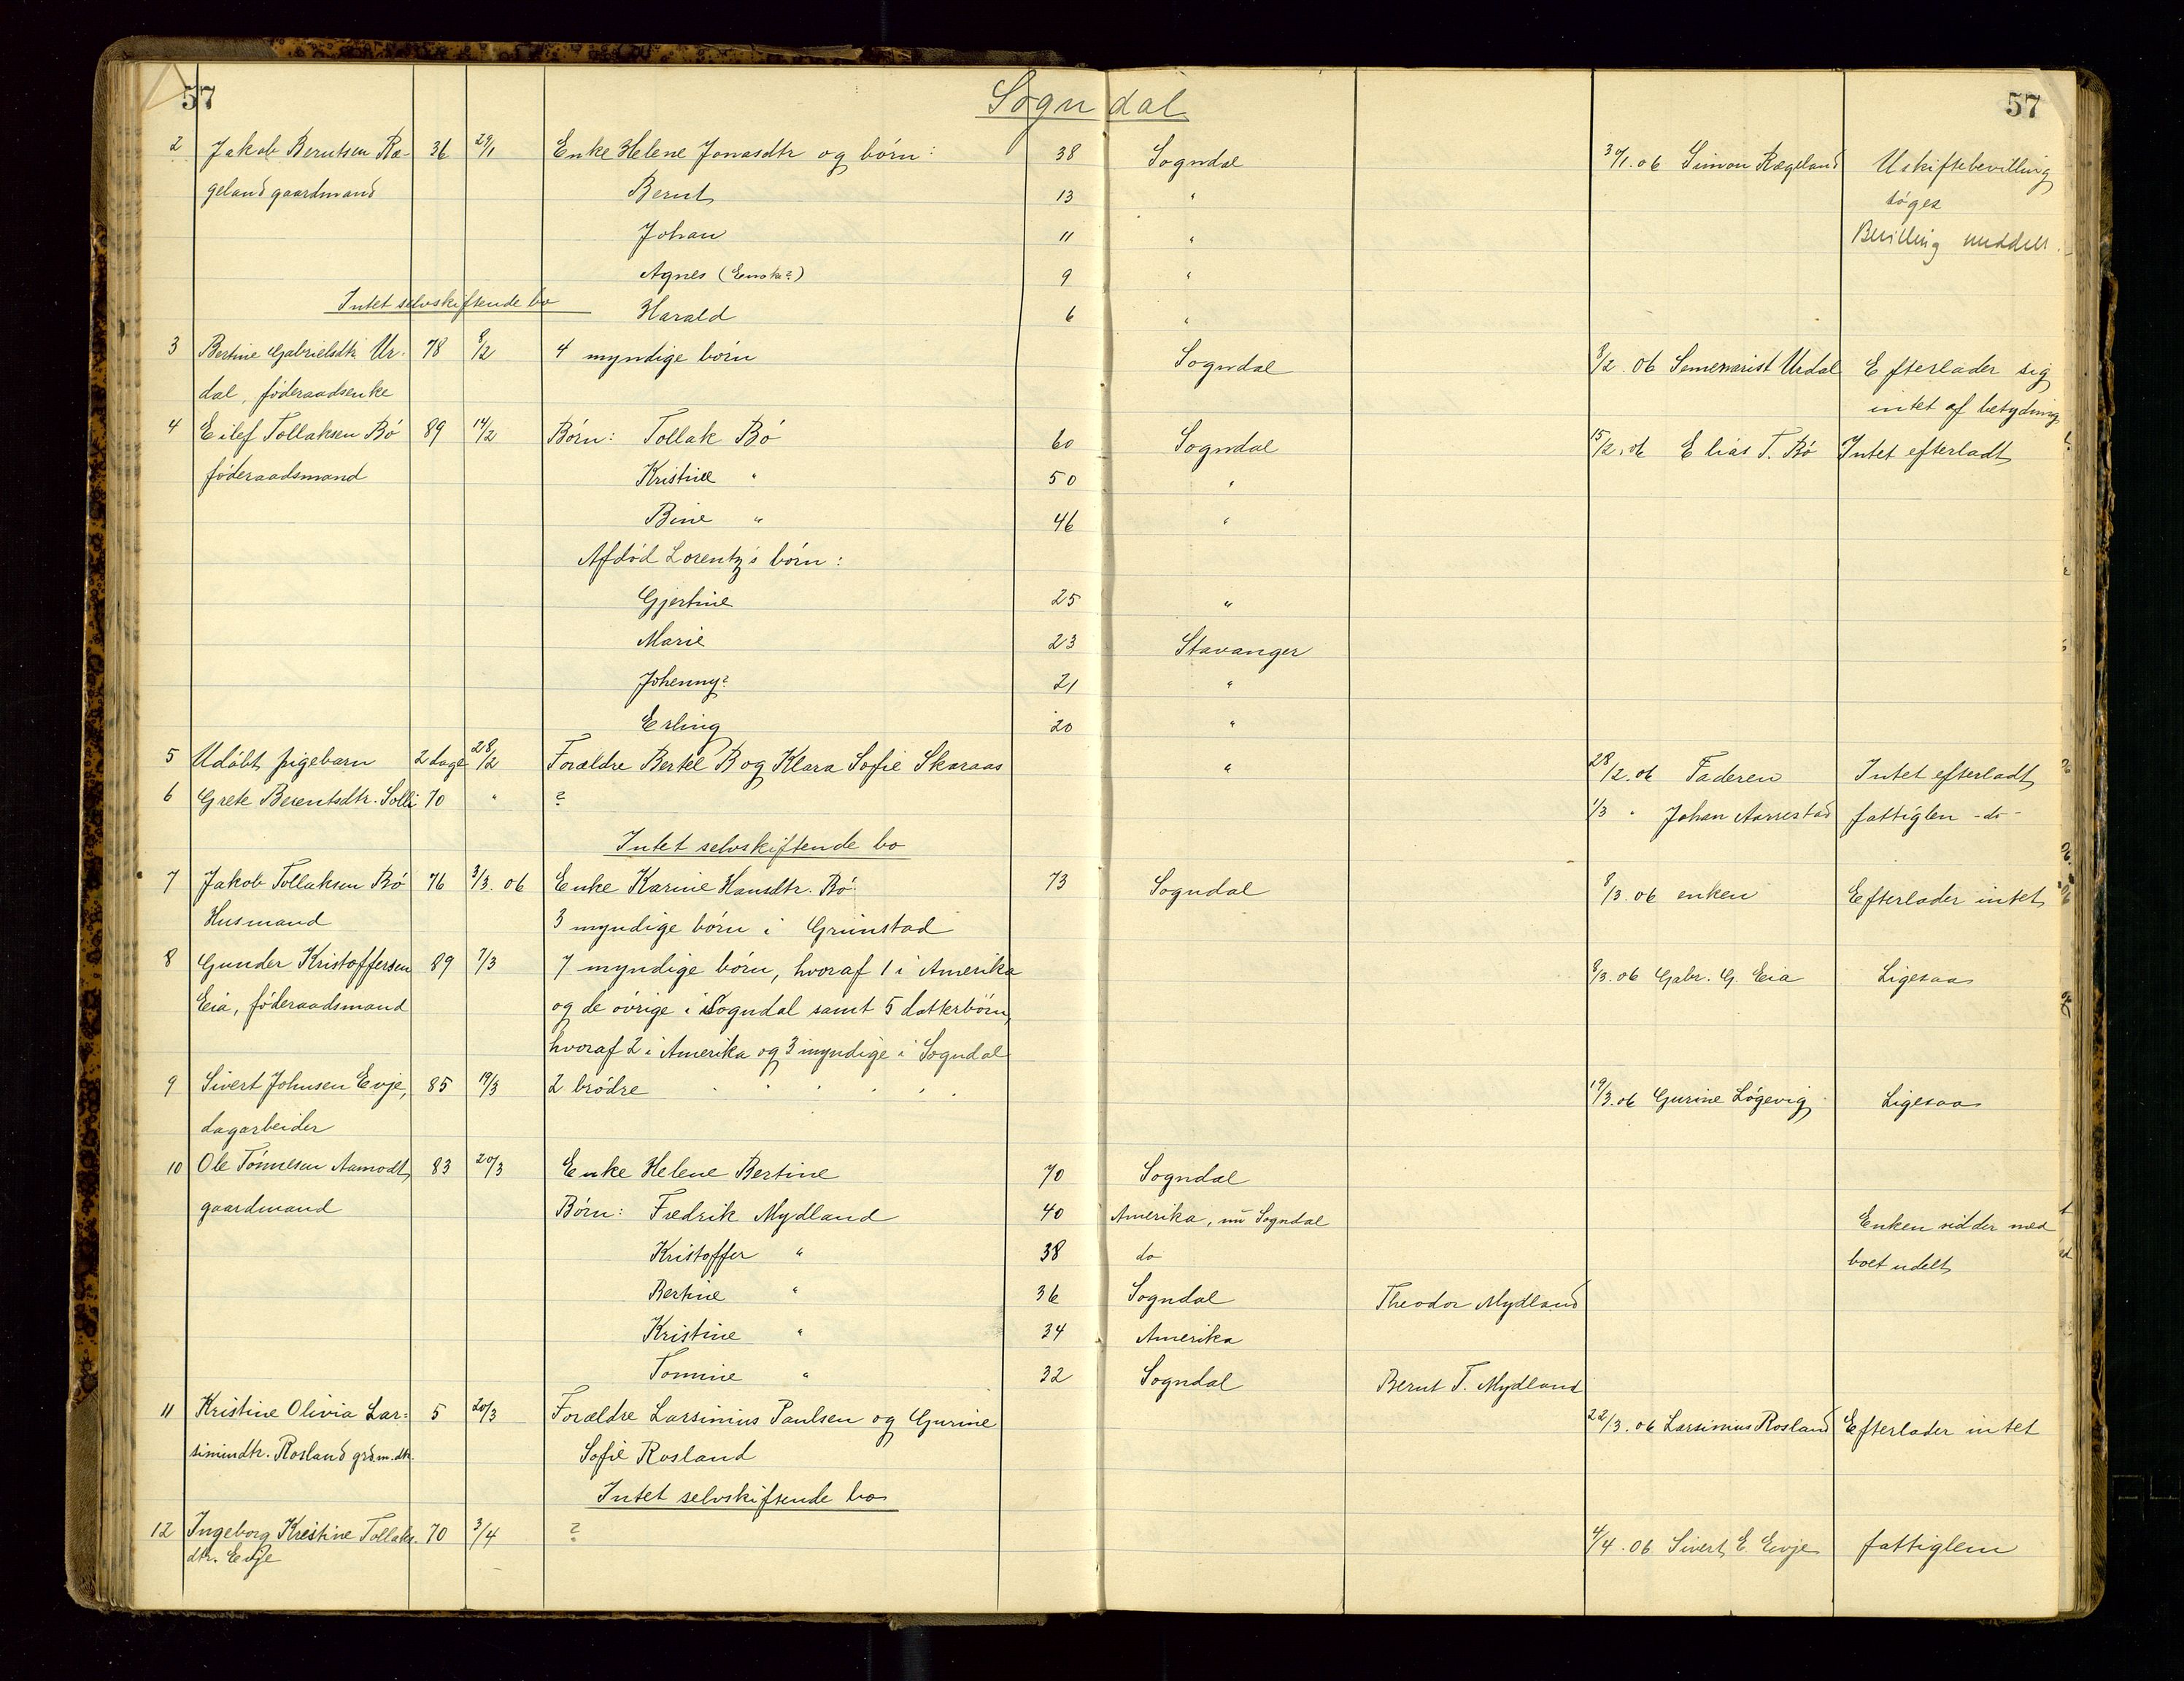 57 Sogndal 57
2 Jakob Berntsen Ræ- 36 29/1 Enke Helene Jonasdtr og börn: 38 Sogndal 30/1. 06 Simon Rægeland Uskiftebevilling
geland gaardmand Bernt 13 " söges
Johan 11 " Bevilling meddelt.
Agnes 9 "
Intet selvskiftende bo Harald 6 "
3 Bertine Gabrielsdtr Ur- 78 8/2 4 myndige börn Sogndal 8/2. 06 Semenarist Urdal Efterlader sig
dal, föderaadsenke intet af betydning
4 Eilef Tollaksen Bö 89 14/2 Börn: Tollak Bö 60 Sogndal 15/2. 06 Elias T. Bö Intet efterladt
föderaadsmand Kristine " 50 "
Bine " 46 "
Afdöd Lorentz's börn:
Gjertine 25 "
Marie 23 Stavanger
Johenny? 21 "
Erling 20 "
5 Udöbt pigebarn 2 dage 28/2 Forældre Bertel B og Klara Sofie Skaraas " 28/2. 06 Faderen Intet efterladt
6 Grete Berentsdtr. Solli 70 " ? 1/3 " Johan Aarrestad fattiglem -do-
Intet selvskiftende bo
7 Jakob Tollaksen Bö 76 3/3. 06 Enke Karine Hansdtr. Bö 73 Sogndal 8/3. 06 enken Efterlader intet
Husmand 3 myndige börn i Grimstad
8 Gunder Kristoffersen 89 7/3 7 myndige börn, hvoraf 1 i Amerika 8/3. 06 Gabr. G. Eia Ligesaa
Eia, föderaadsmand og de övrige i Sogndal samt 5 datterbörn,
hvoraf 2 i Amerika og 3 myndige i Sogndal
9 Sivert Johnsen Evje, 85 19/3 2 brödre 19/3. 06 Gurine Lögevig Ligesaa
dagarbeider
10 Ole Tönnesen Aamodt 83 20/3 Enke Helene Bertine 70 Sogndal
gaardmand Börn: Fredrik Mydland 40 Amerika, nu Sogndal Enken sidder med
Kristoffer " 38 do boet udelt
Bertine " 36 Sogndal Theodor Mydland
Kristine " 34 Amerika
Tomine " 32 Sogndal Bernt T. Mydland
11 Kristine Olivia Lar- 5 20/3 Forældre Larsinius Paulsen og Gurine 22/3. 06 Larsinius Rosland Efterlader intet
siniusdtr. Rosland grdm.dtr. Sofie Rosland
Intet selvskiftende bo
12 Ingeborg Kristine Tollaks- 70 3/4 ? 4/4. 06 Sivert E. Evje fattiglem
dtr. Evje